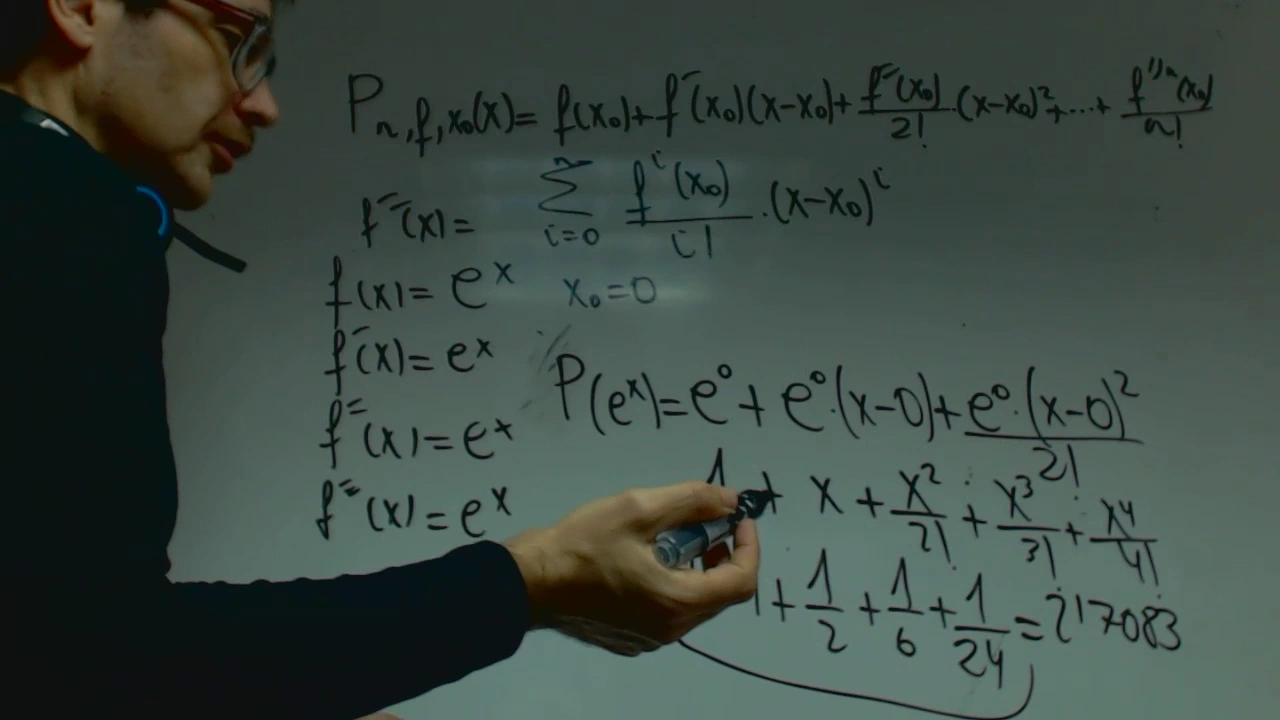 Pn,f,x₀(x)= f(x₀)+f'(x₀)(x-x₀)+ f''(x₀)/2! ·(x-x₀)²+...+ f⁾ⁿ(x₀)/n!
f''(x)= Σ i=0 n fⁱ(x₀)/i! ·(x-x₀)ⁱ
f(x)= eˣ x₀=0
f'(x)= eˣ
P(eˣ)=e⁰+ e⁰·(x-0)+ e⁰·(x-0)²/2!
f''(x)=eˣ
1 + x + x²/2! + x³/3! + x⁴/4!
f'''(x)=eˣ
1+ 1/2 + 1/6 + 1/24 = 2'7083